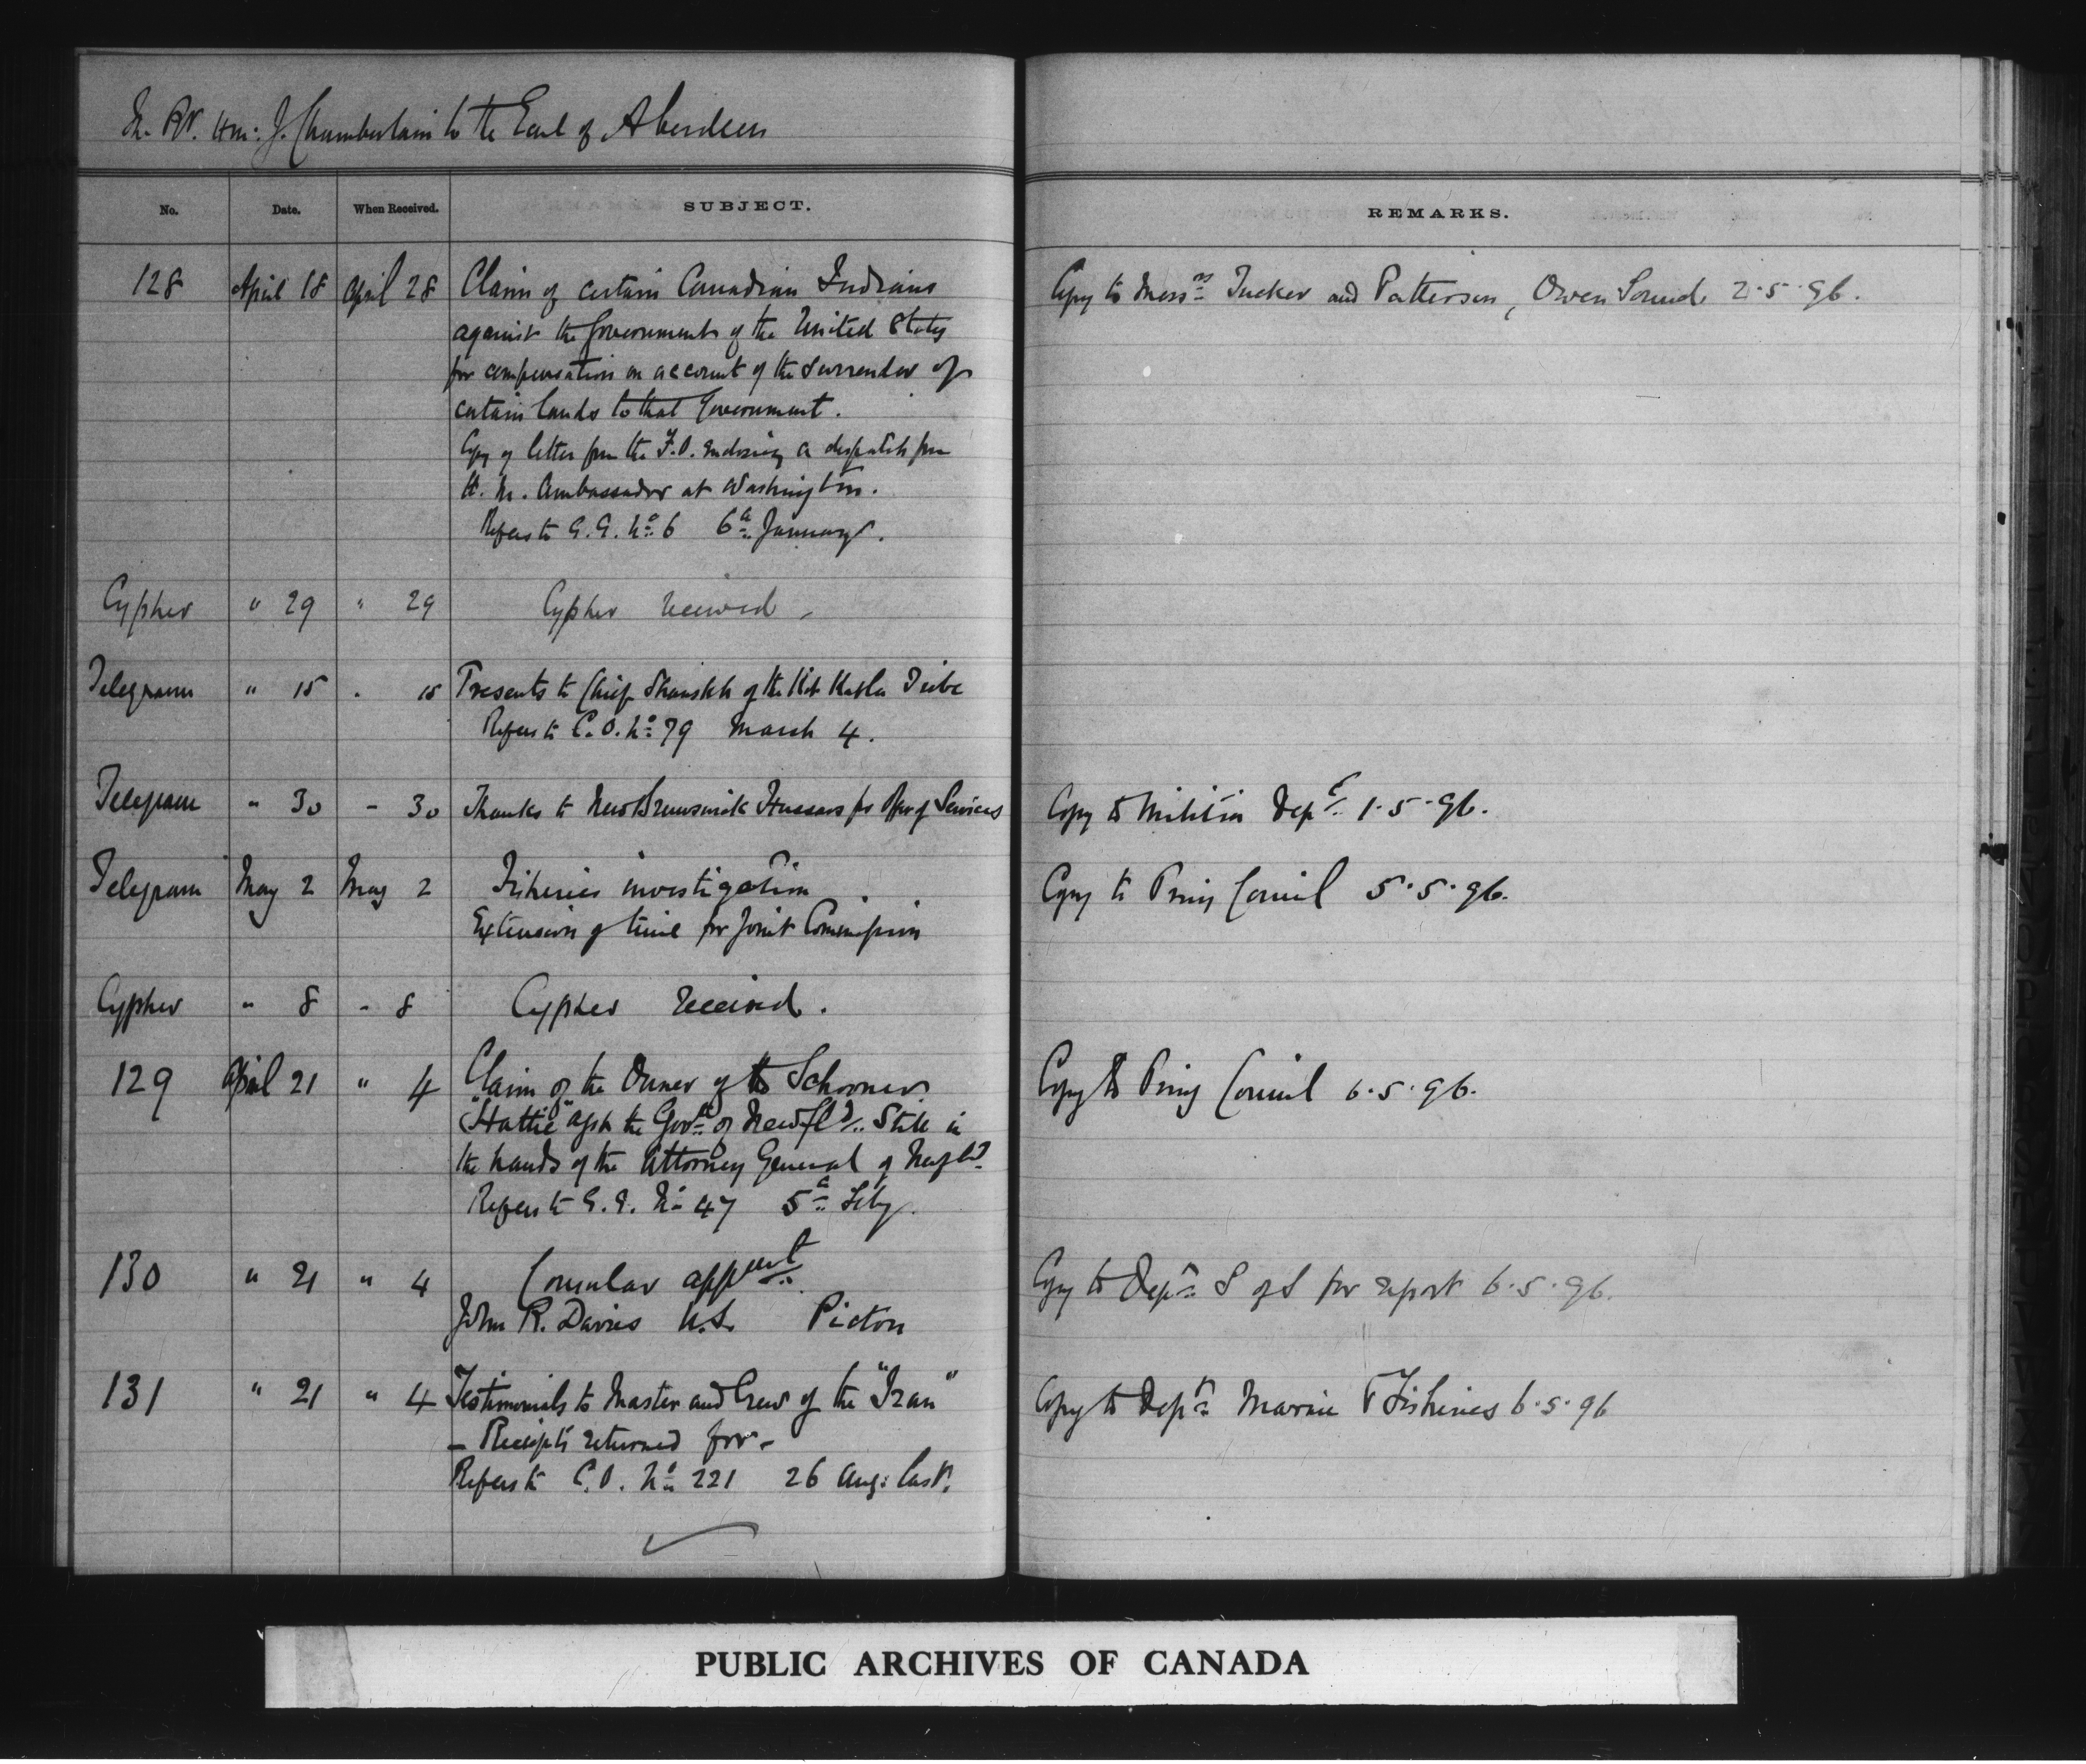 Th. Rt. Hon: J. Chamberlain to the Earl of Aberdeen
No. Date. When Received. SUBJECT. REMARKS.
128 April 18 April 28 Claim of certain Canadian Indians Copy to Messrs Tucker and Patterson, Owen Sound. 2.5.96.
against the Government of the United States
for compensation on account of the surrender of
certain lands to that Government.
Copy of letter from the F.O. enclosing a despatch from
H. M. Ambassador at Washington.
Refers to G.G. No 6 6th January.
Cypher " 29 " 29 Cypher received.
Telegram " 15 " 15 Presents to Chief of the Kit Katla Tribe
Refers to C.O. No 79 March 4.
Telegram " 30 " 30 Thanks to New Brunswick Hussars for offer of Services Copy to Militia Dept 1.5.96.
Telegram May 2 May 2 Fisheries investigation Copy to Privy Council 5.5.96.
Extension of time for Joint Commission
Cypher " 8 " 8 Cypher received.
129 April 21 " 4 Claim of the Owner of the Schooner Copy to Privy Council 6.5.96.
"Hattie" agst the Govt of Newfld. Still in
the hands of the Attorney General of Newfld.
Refers to G.G. No 47 5th Feby.
130 " 21 " 4 Consular appmt. Copy to Dept S of S for report 6.5.96.
John R. Davies U.S. Picton
131 " 21 " 4 Testimonials to Master and Crew of the "Iran" Copy to Dept Marine & Fisheries 6.5.96
– Receipts returned for –
Refers to C.O. No 221 26 Aug: last.
PUBLIC ARCHIVES OF CANADA